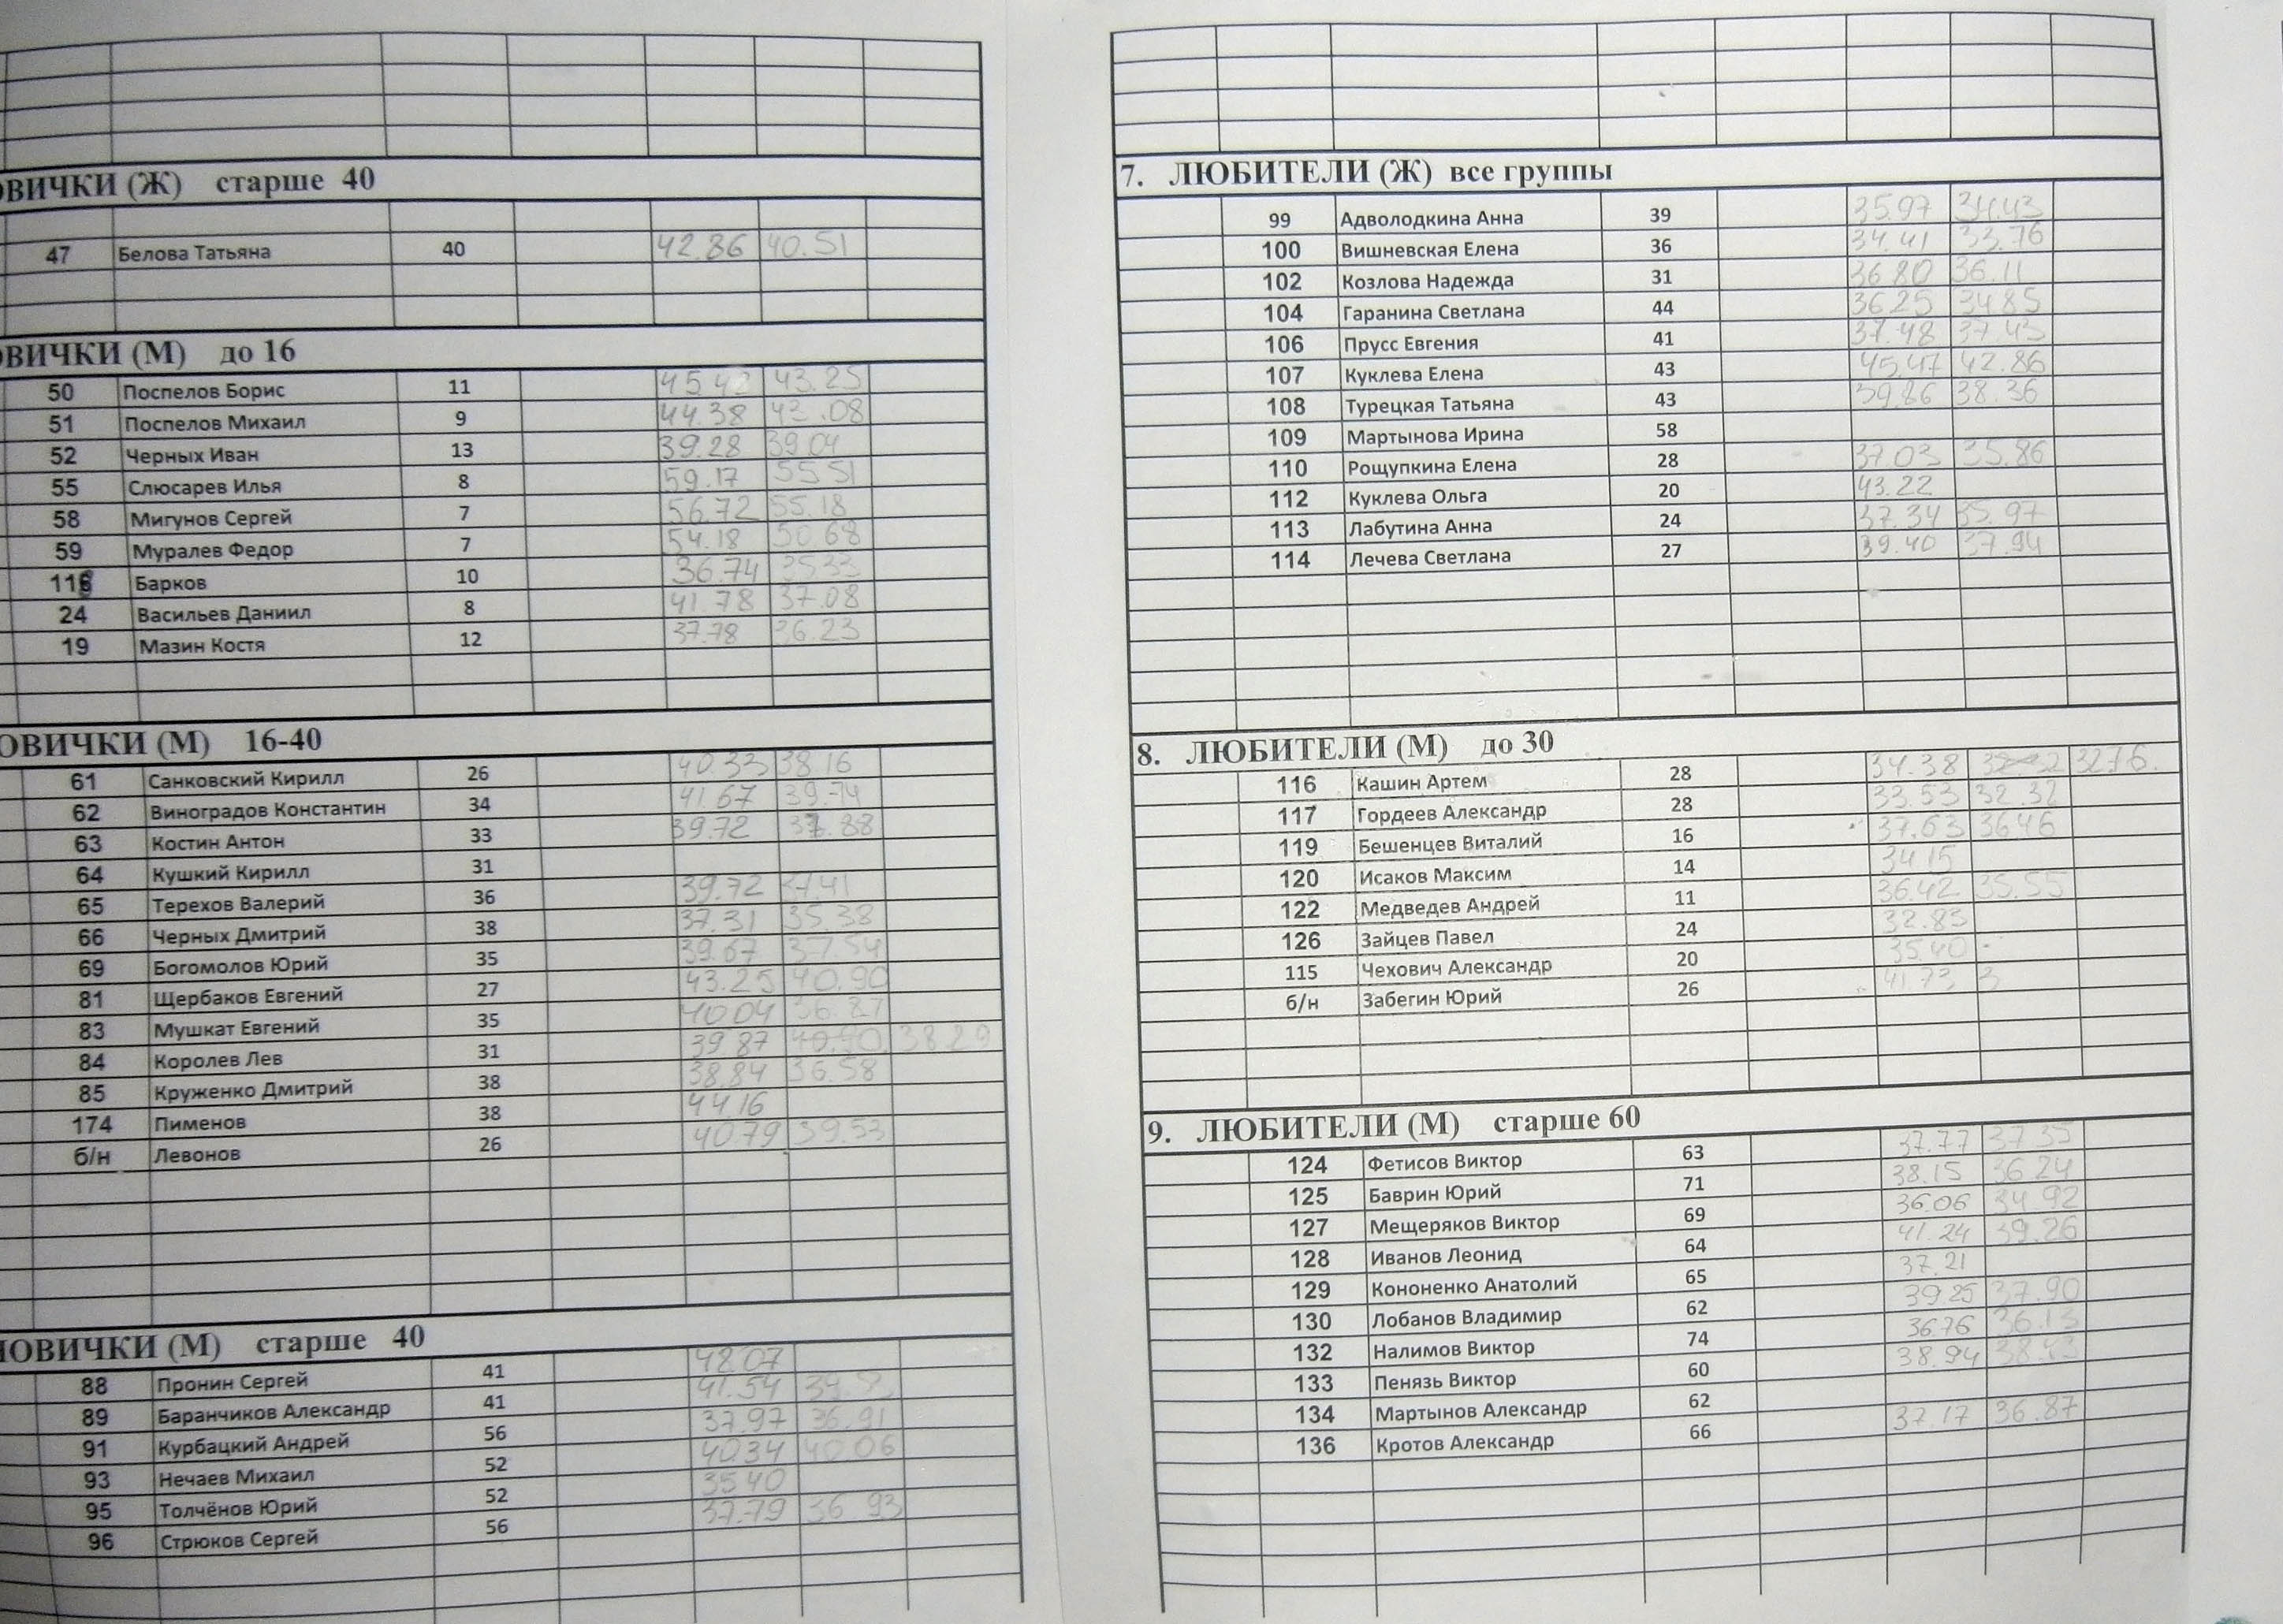 ОВИЧКИ (Ж) старше 40
47 Белова Татьяна 40 42.86 40.51
ОВИЧКИ (М) до 16
50 Поспелов Борис 11 45.42 43.25
51 Поспелов Михаил 9 44.38 42.08
52 Черных Иван 13 39.28 39.04
55 Слюсарев Илья 8 59.17 55.51
58 Мигунов Сергей 7 56.72 55.18
59 Муралев Федор 7 54.18 50.68
Барков 10 36.74 35.33
24 Васильев Даниил 8 41.78 37.08
19 Мазин Костя 12 37.78 36.23
ОВИЧКИ (М) 16-40
61 Санковский Кирилл 26 40.33 38.16
62 Виноградов Константин 34 41.67
63 Костин Антон 33 39.72
64 Кушкий Кирилл 31
65 Терехов Валерий 36 39.72 37.41
66 Черных Дмитрий 38 37.31 35.38
69 Богомолов Юрий 35 39.67 37.54
81 Щербаков Евгений 27 43.25 40.90
83 Мушкат Евгений 35 40.04 36.87
84 Королев Лев 31 39.87 40.90 38.29
85 Круженко Дмитрий 38 38.84 36.58
174 Пименов 38 44.16
б/н Левонов 26 40.79 39.53
НОВИЧКИ (М) старше 40
88 Пронин Сергей 41 48.07
89 Баранчиков Александр 41 41.54
91 Курбацкий Андрей 56 37.97 36.91
93 Нечаев Михаил 52 40.34 40.06
95 Толчёнов Юрий 52 35.40
96 Стрюков Сергей 56 37.79 36.93
7. ЛЮБИТЕЛИ (Ж) все группы
99 Адволодкина Анна 39 35.97 34.43
100 Вишневская Елена 36 34.41 33.76
102 Козлова Надежда 31 36.80 36.11
104 Гаранина Светлана 44 36.25 34.85
106 Прусс Евгения 41 37.48 37.43
107 Куклева Елена 43 45.47 42.86
108 Турецкая Татьяна 43 39.86 38.36
109 Мартынова Ирина 58
110 Рощупкина Елена 28 37.03 35.86
112 Куклева Ольга 20 43.22
113 Лабутина Анна 24 37.34 35.97
114 Лечева Светлана 27 39.40 37.94
8. ЛЮБИТЕЛИ (М) до 30
116 Кашин Артем 28 34.38 32.76.
117 Гордеев Александр 28 33.53 32.32
119 Бешенцев Виталий 16 37.63 36.46
120 Исаков Максим 14 34.15
122 Медведев Андрей 11 36.42 35.55
126 Зайцев Павел 24 32.83
115 Чехович Александр 20 35.40 -
б/н Забегин Юрий 26 41.73 3
9. ЛЮБИТЕЛИ (М) старше 60
124 Фетисов Виктор 63 37.77 37.35
125 Баврин Юрий 71 38.15 36.24
127 Мещеряков Виктор 69 36.06 34.92
128 Иванов Леонид 64 41.24 39.26
129 Кононенко Анатолий 65 37.21
130 Лобанов Владимир 62 39.25 37.90
132 Налимов Виктор 74 36.76 36.13
133 Пенязь Виктор 60 38.94
134 Мартынов Александр 62
136 Кротов Александр 66 37.17 36.87